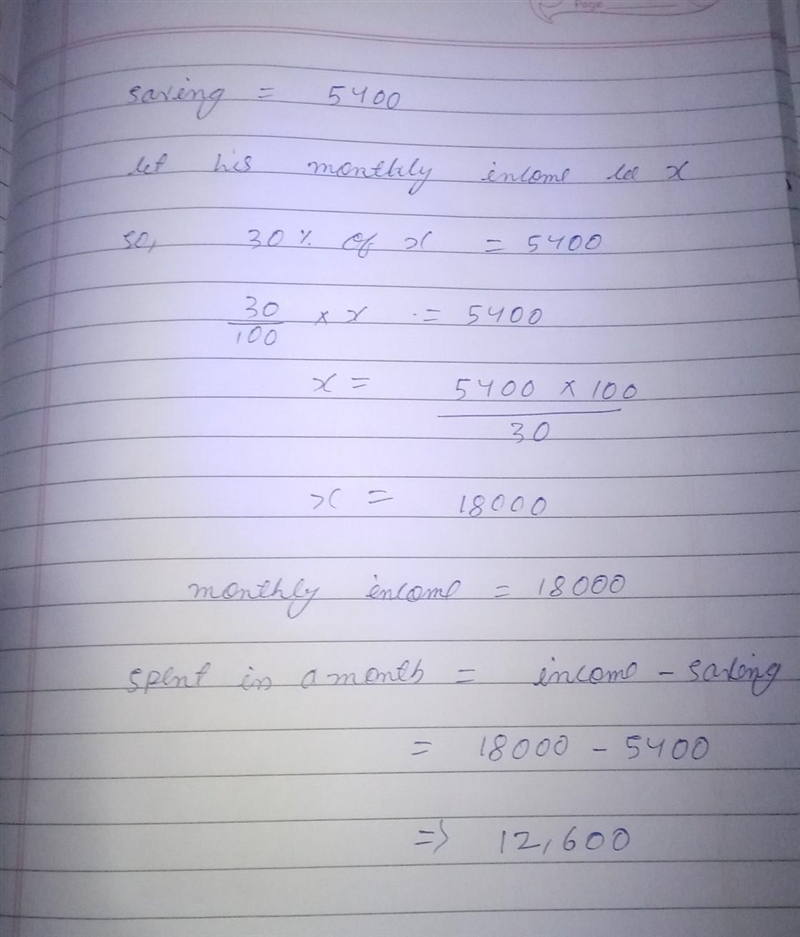 Page
saving = 5400
let his monthly income be x
so, 30% of x = 5400
30/100 × x = 5400
x = 5400 × 100/30
x = 18000
monthly income = 18000
spent in a month = income - saving
= 18000 - 5400
=> 12,600